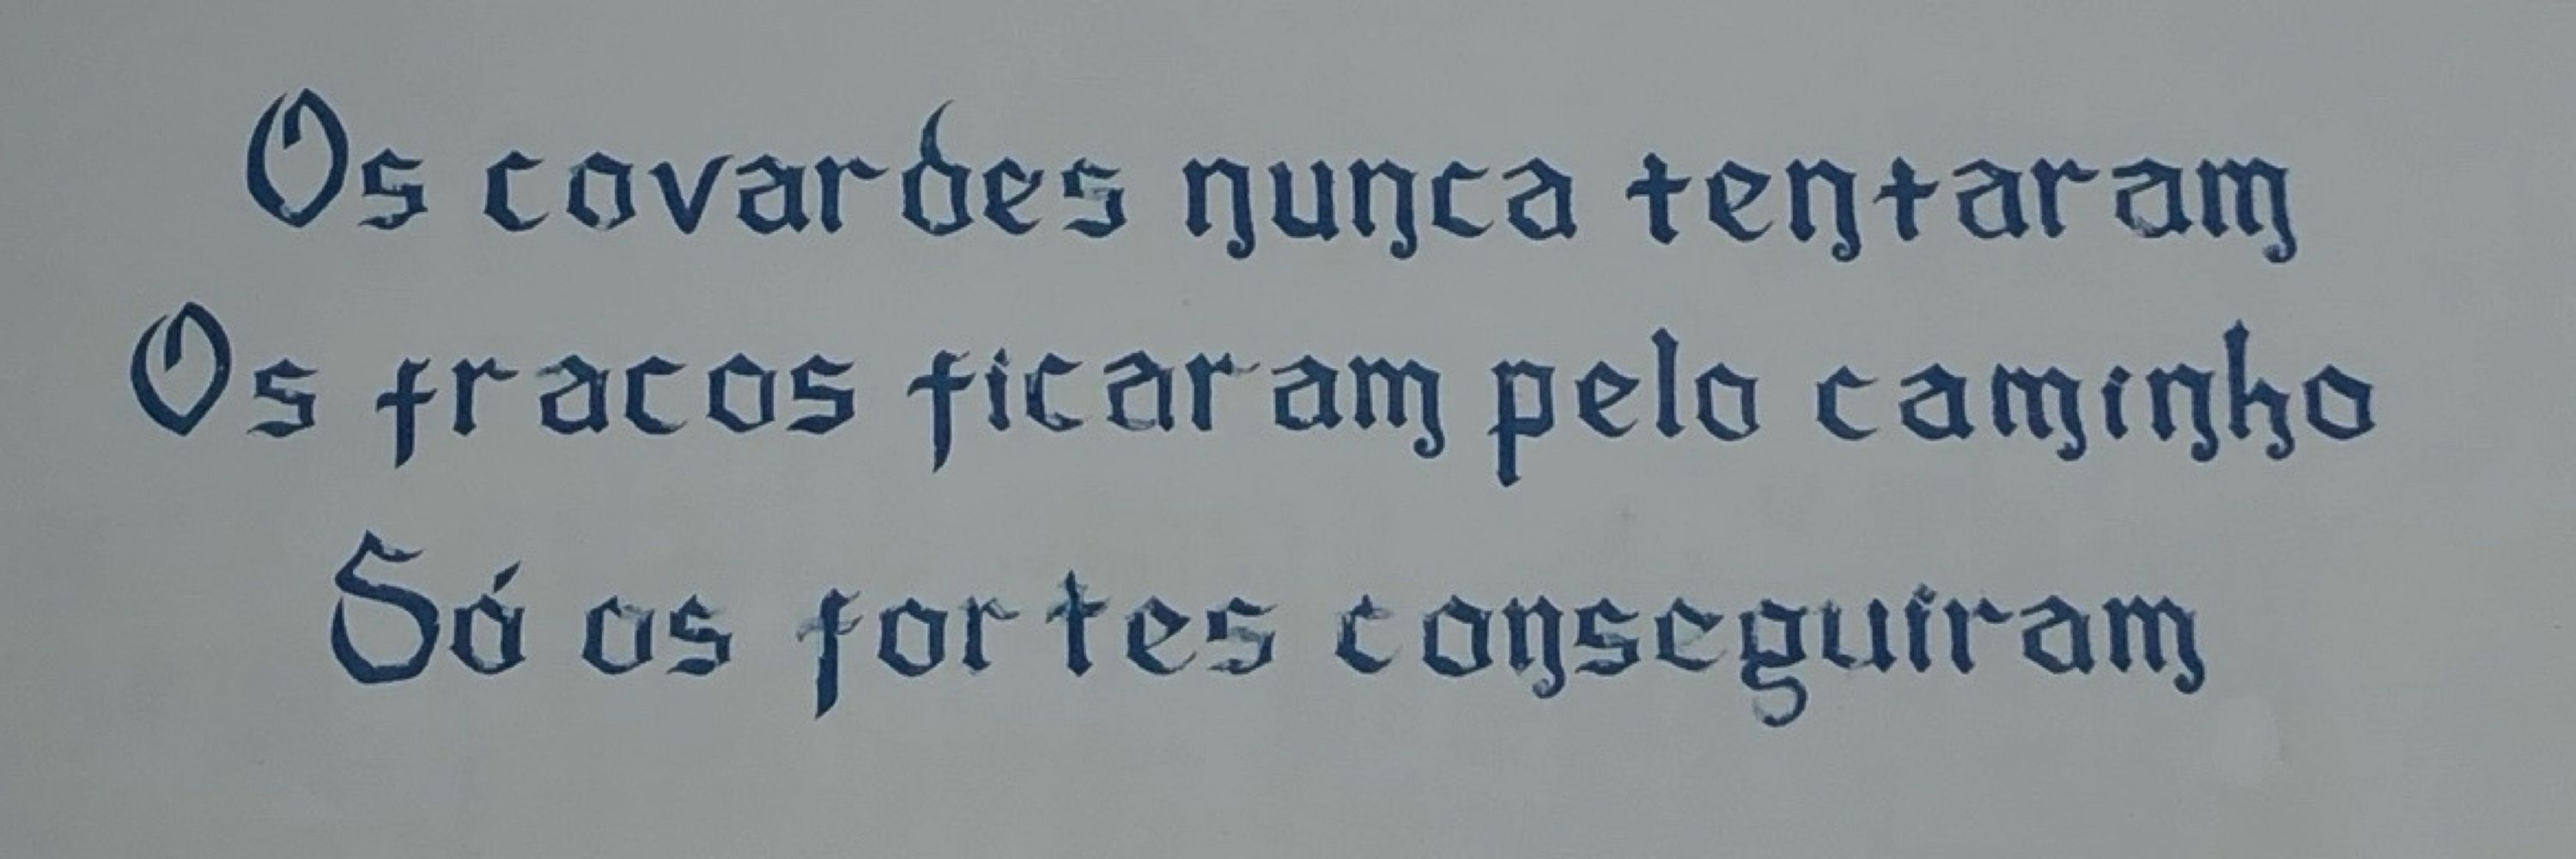 Os covardes nunca tentaram
Os fracos ficaram pelo caminho
Só os fortes conseguiram